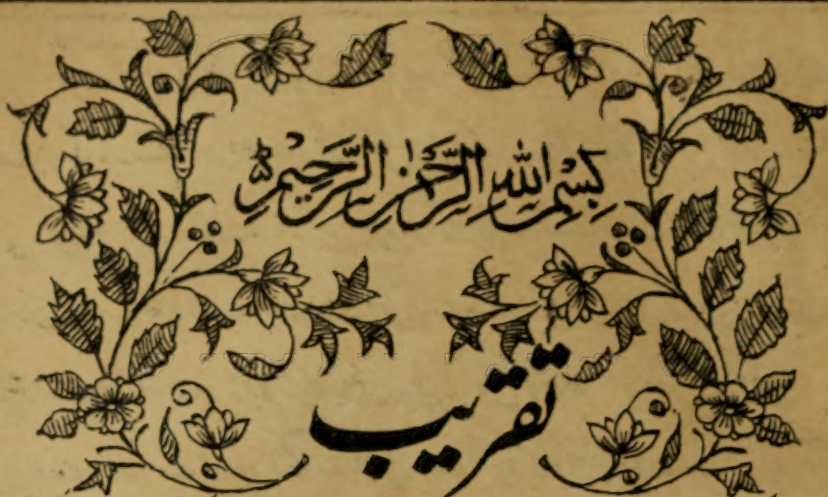 بِسْمِ اللّٰهِ الرَّحْمٰنِ الرَّحِيْمِ
تقریب